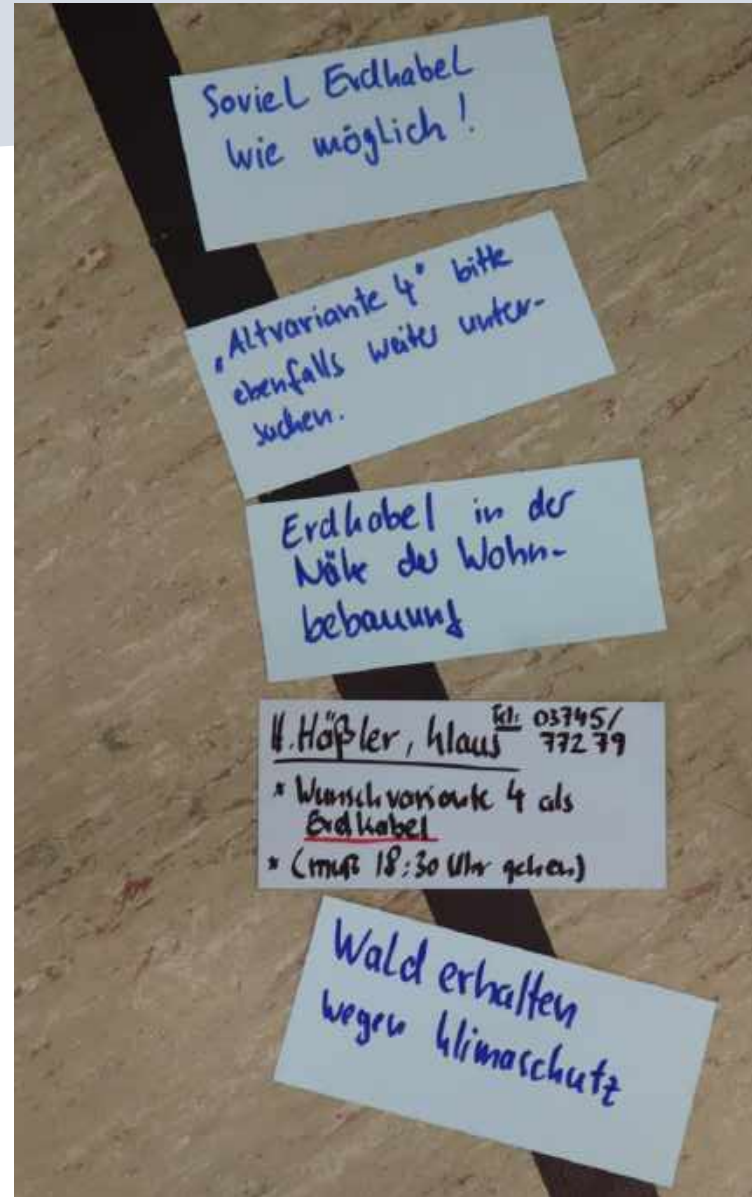 Soviel Erdkabel
wie möglich!
„Altvariante 4" bitte
ebenfalls weiter unter-
suchen.
Erdkabel in der
Nähe der Wohn-
bebauung
H. Häßler, Klaus Tel: 03745/
77279
* Wunschvariante 4 als
Erdkabel
* (muß 18:30 Uhr gehen)
Wald erhalten
wegen Klimaschutz